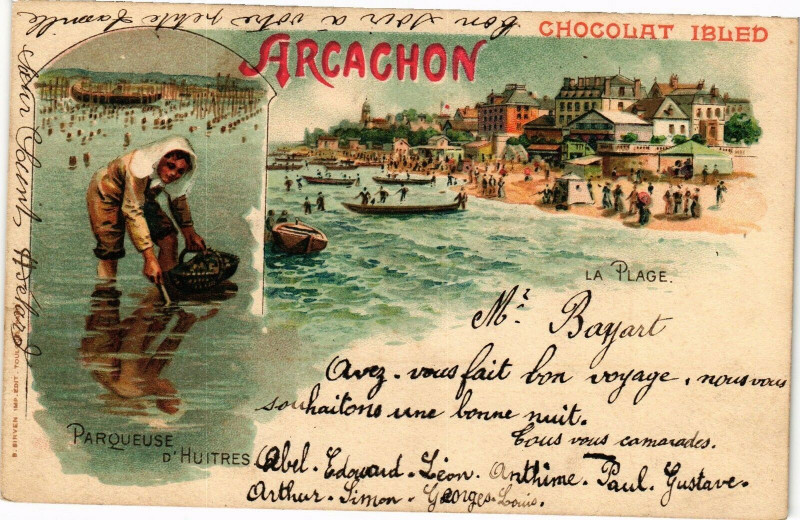 bon soir à votre petite famille
CHOCOLAT IBLED
ARCACHON
LA PLAGE.
Mr Bayart
Avez-vous fait bon voyage, nous vous
souhaitons une bonne nuit.
Tous vos camarades.
PARQUEUSE
D'HUITRES
Abel. Edouard. Léon. Anthime. Paul. Gustave.
Arthur. Simon. Georges. Louis.
B. SIRVEN IMP. EDIT. TOUL